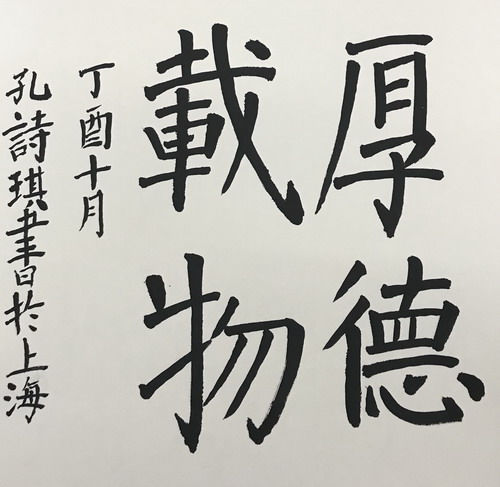 厚德
載物
丁酉十月
孔詩琪書於上海